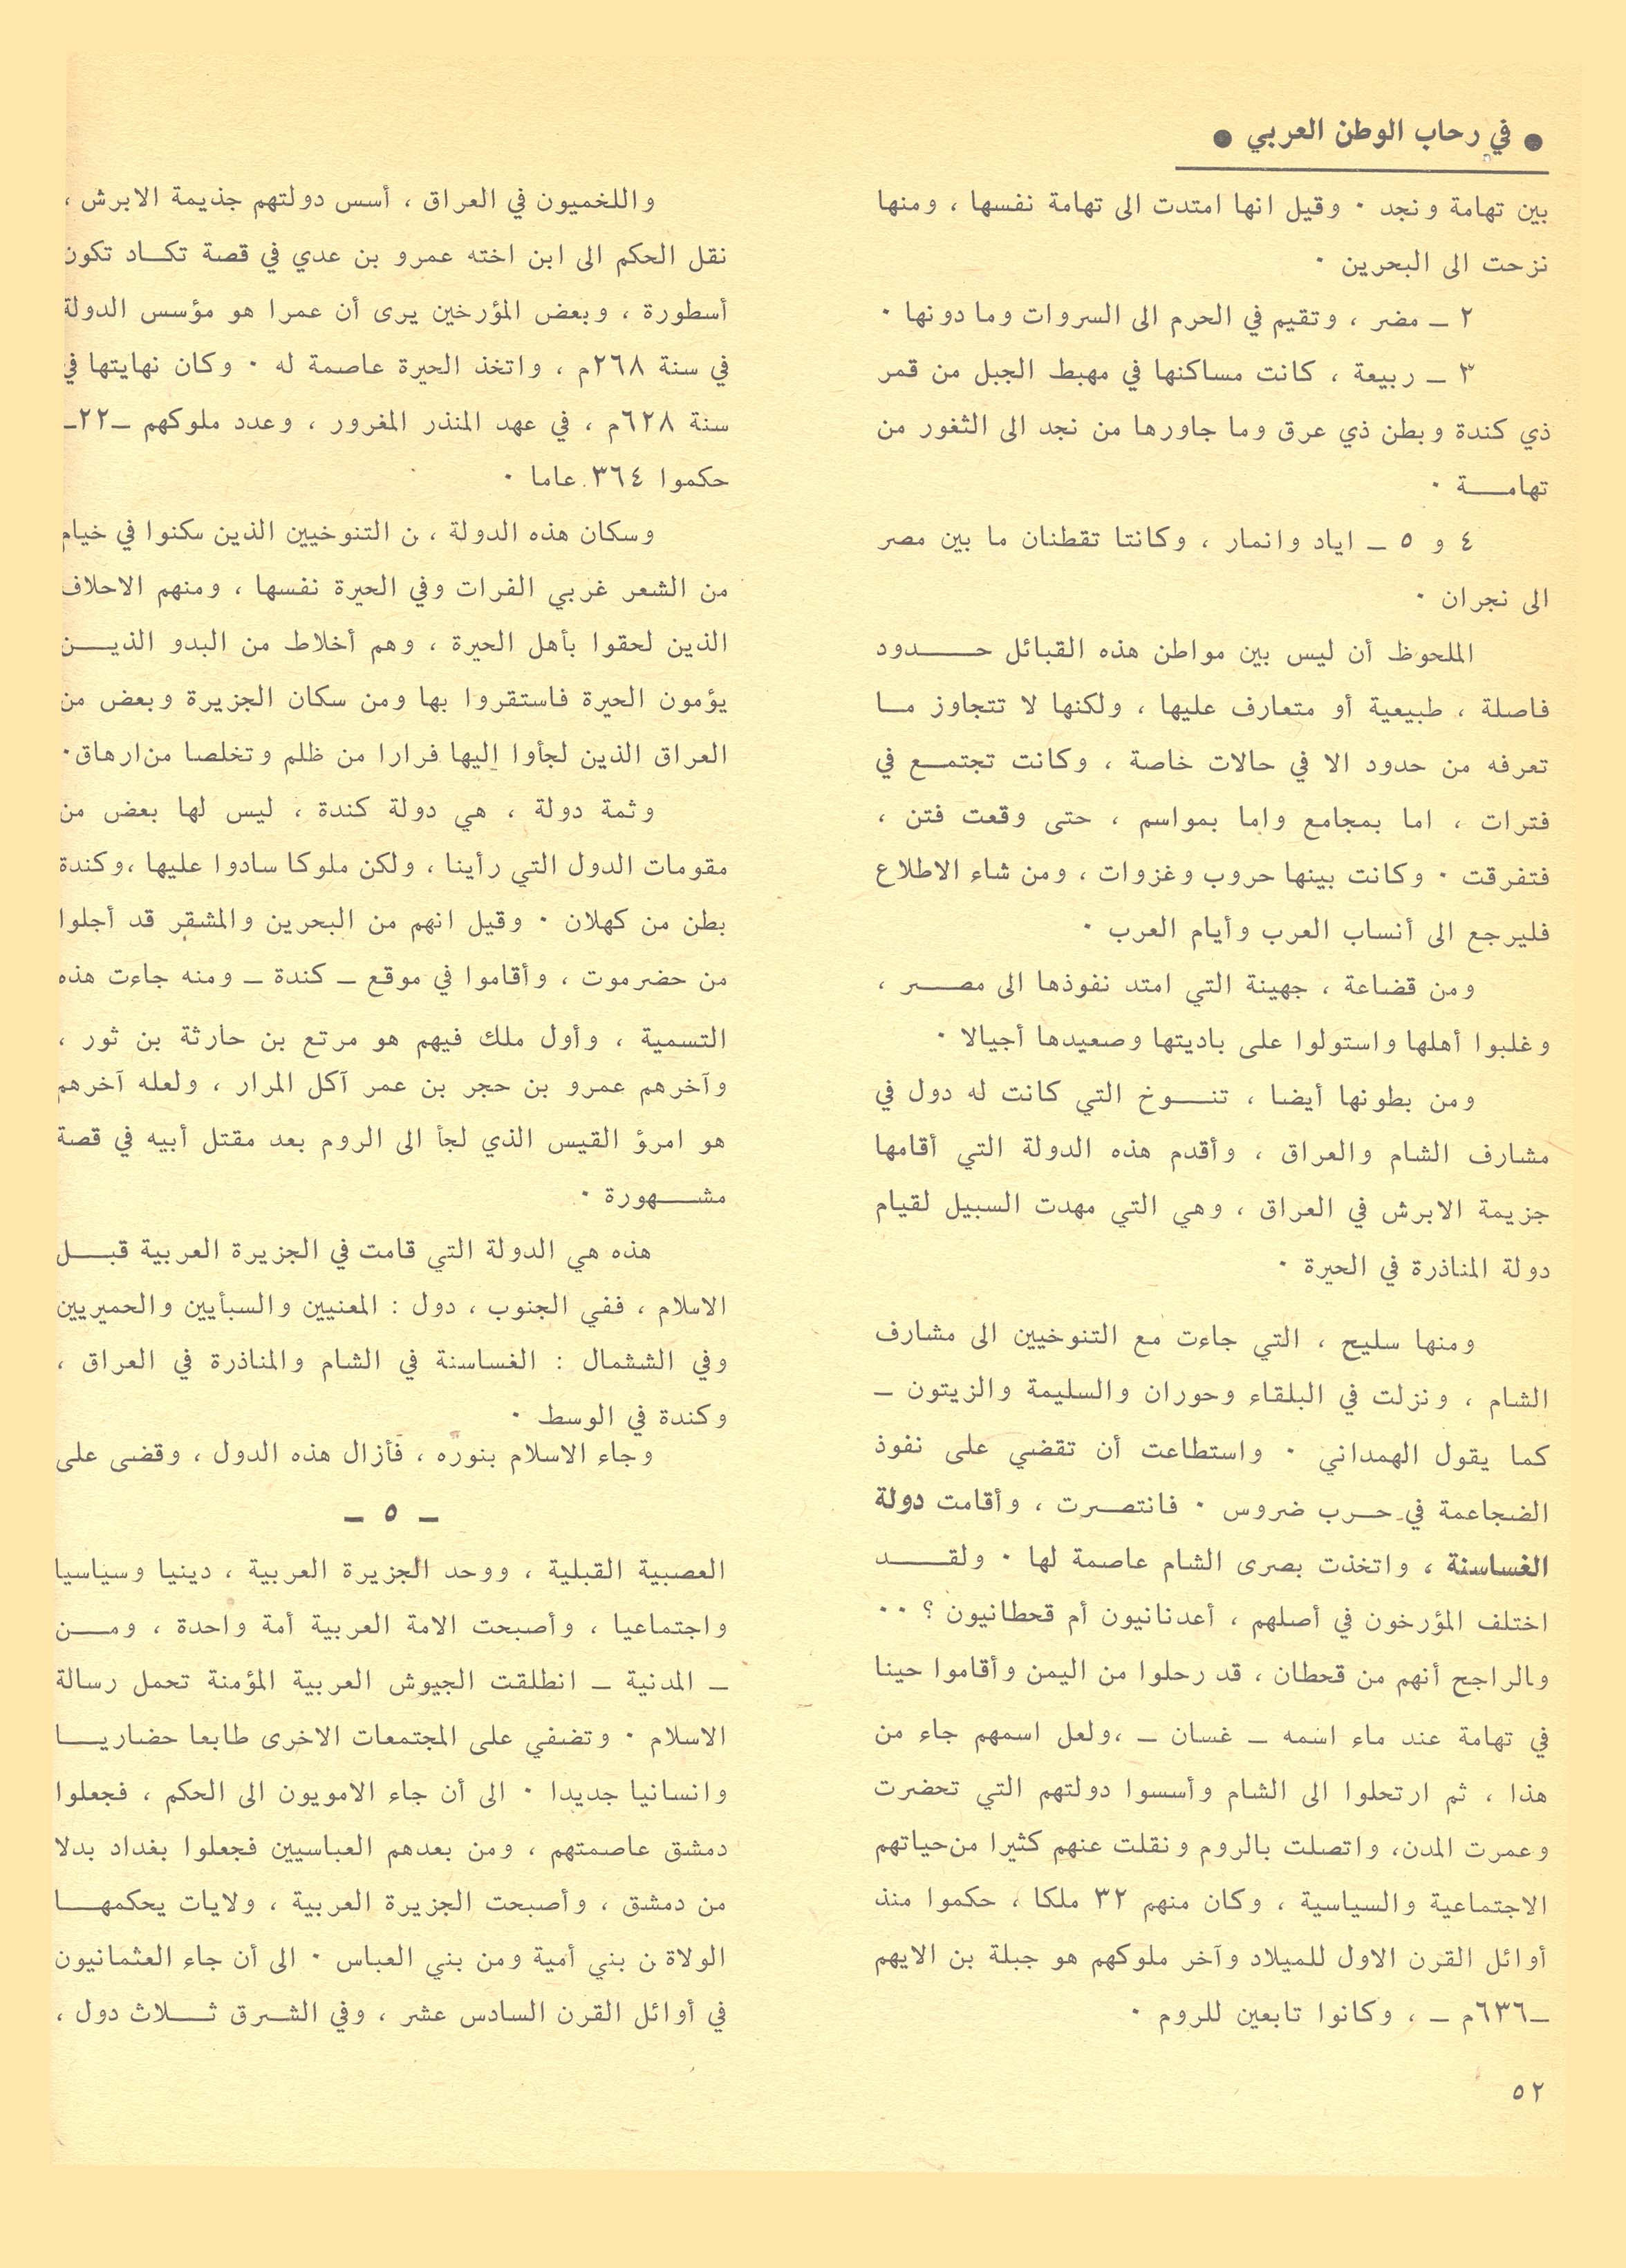 ● في رحاب الوطن العربي ●
بين تهامة ونجد . وقيل انها امتدت الى تهامة نفسها ، ومنها
نزحت الى البحرين .
٢ ــ مضر ، وتقيم في الحرم الى السروات وما دونها .
٣ ــ ربيعة ، كانت مساكنها في مهبط الجبل من قمر
ذي كندة وبطن ذي عرق وما جاورها من نجد الى الثغور من
تهامـــة .
٤ و ٥ ــ اياد وانمار ، وكانتا تقطنان ما بين مصر
الى نجران .
الملحوظ أن ليس بين مواطن هذه القبائل حـــدود
فاصلة ، طبيعية أو متعارف عليها ، ولكنها لا تتجاوز مــا
تعرفه من حدود الا في حالات خاصة ، وكانت تجتمــع في
فترات ، اما بمجامع واما بمواسم ، حتى وقعت فتن ،
فتفرقت . وكانت بينها حروب وغزوات ، ومن شاء الاطلاع
فليرجع الى أنساب العرب وأيام العرب .
ومن قضاعة ، جهينة التي امتد نفوذها الى مصــر ،
وغلبوا أهلها واستولوا على باديتها وصعيدها أجيالا .
ومن بطونها أيضا ، تنــوخ التي كانت له دول في
مشارف الشام والعراق ، وأقدم هذه الدولة التي أقامها
جزيمة الابرش في العراق ، وهي التي مهدت السبيل لقيام
دولة المناذرة في الحيرة .
ومنها سليح ، التي جاءت مع التنوخيين الى مشارف
الشام ، ونزلت في البلقاء وحوران والسليمة والزيتون ــ
كما يقول الهمداني . واستطاعت أن تقضي على نفوذ
الضجاعمة في حــرب ضروس . فانتصــرت ، وأقامت دولة
الغساسنة ، واتخذت بصرى الشام عاصمة لها . ولقــد
اختلف المؤرخون في أصلهم ، أعدنانيون أم قحطانيون ؟ ..
والراجح أنهم من قحطان ، قد رحلوا من اليمن وأقاموا حينا
في تهامة عند ماء اسمه ــ غسان ــ ،ولعل اسمهم جاء من
هذا ، ثم ارتحلوا الى الشام وأسسوا دولتهم التي تحضرت
وعمرت المدن، واتصلت بالروم ونقلت عنهم كثيرا من حياتهم
الاجتماعية والسياسية ، وكان منهم ٣٢ ملكا ، حكموا منذ
أوائل القرن الاول للميلاد وآخر ملوكهم هو جبلة بن الايهم
ــ٦٣٦م ــ ، وكانوا تابعين للروم .
واللخميون في العراق ، أسس دولتهم جذيمة الابرش ،
نقل الحكم الى ابن اخته عمرو بن عدي في قصة تكــاد تكون
أسطورة ، وبعض المؤرخين يرى أن عمرا هو مؤسس الدولة
في سنة ٢٦٨م ، واتخذ الحيرة عاصمة له . وكان نهايتها في
سنة ٦٢٨م ، في عهد المنذر المغرور ، وعدد ملوكهم ــ٢٢ــ
حكموا ٣٦٤ عاما .
وسكان هذه الدولة ، ن التنوخيين الذين سكنوا في خيام
من الشعر غربي الفرات وفي الحيرة نفسها ، ومنهم الاحلاف
الذين لحقوا بأهل الحيرة ، وهم أخلاط من البدو الذيــن
يؤمون الحيرة فاستقروا بها ومن سكان الجزيرة وبعض من
العراق الذين لجأوا إليها فرارا من ظلم وتخلصا من ارهاق.
وثمة دولة ، هي دولة كندة ، ليس لها بعض من
مقومات الدول التي رأينا ، ولكن ملوكا سادوا عليها ،وكندة
بطن من كهلان . وقيل انهم من البحرين والمشقر قد أجلوا
من حضرموت ، وأقاموا في موقع ــ كندة ــ ومنه جاءت هذه
التسمية ، وأول ملك فيهم هو مرتع بن حارثة بن ثور ،
وآخرهم عمرو بن حجر بن عمر آكل المرار ، ولعله آخرهم
هو امرؤ القيس الذي لجأ الى الروم بعد مقتل أبيه في قصة
مشـــهورة .
هذه هي الدولة التي قامت في الجزيرة العربية قبــل
الاسلام ، ففي الجنوب ، دول : المعنيين والسبأيين والحميريين
وفي الششمال : الغساسنة في الشام والمناذرة في العراق ،
وكندة في الوسط .
وجاء الاسلام بنوره ، فأزال هذه الدول ، وقضى على
ــ ٥ ــ
العصبية القبلية ، ووحد الجزيرة العربية ، دينيا وسياسيا
واجتماعيا ، وأصبحت الامة العربية أمة واحدة ، ومــن
ــ المدنية ــ انطلقت الجيوش العربية المؤمنة تحمل رسالة
الاسلام . وتضفي على المجتمعات الاخرى طابعا حضاريــا
وانسانيا جديدا . الى أن جاء الامويون الى الحكم ، فجعلوا
دمشق عاصمتهم ، ومن بعدهم العباسيين فجعلوا بغداد بدلا
من دمشق ، وأصبحت الجزيرة العربية ، ولايات يحكمهــا
الولاة ن بني أمية ومن بني العباس . الى أن جاء العثمانيون
في أوائل القرن السادس عشر ، وفي الشــرق ثــلاث دول ،
٥٢